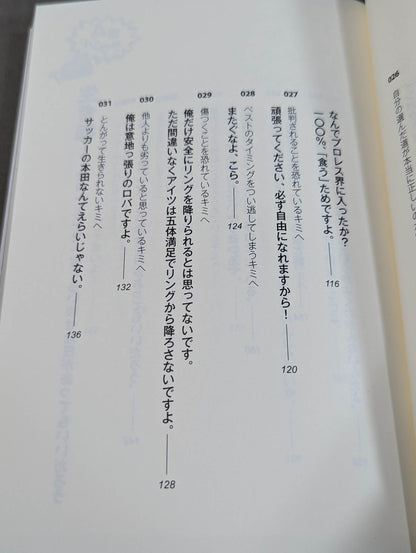 026
自分の選んだ道が本当に正しい
なんでプロレス界に入ったか?
一〇〇%、「食う」ためですよ。
116
027
批判されることを恐れているキミへ
頑張ってください、必ず自由になれますから!
120
028
ベストのタイミングをつい逃してしまうキミへ
またぐなよ、こら。
124
029
傷つくことを恐れているキミへ
俺だけ安全にリングを降りられるとは思ってないです。
ただ間違いなくアイツは五体満足でリングから降ろさないですよ。
128
030
他人よりも劣っていると思っているキミへ
俺は意地っ張りのロバですよ。
132
031
とんがって生きられないキミへ
サッカーの本田なんてえらいじゃない。
136